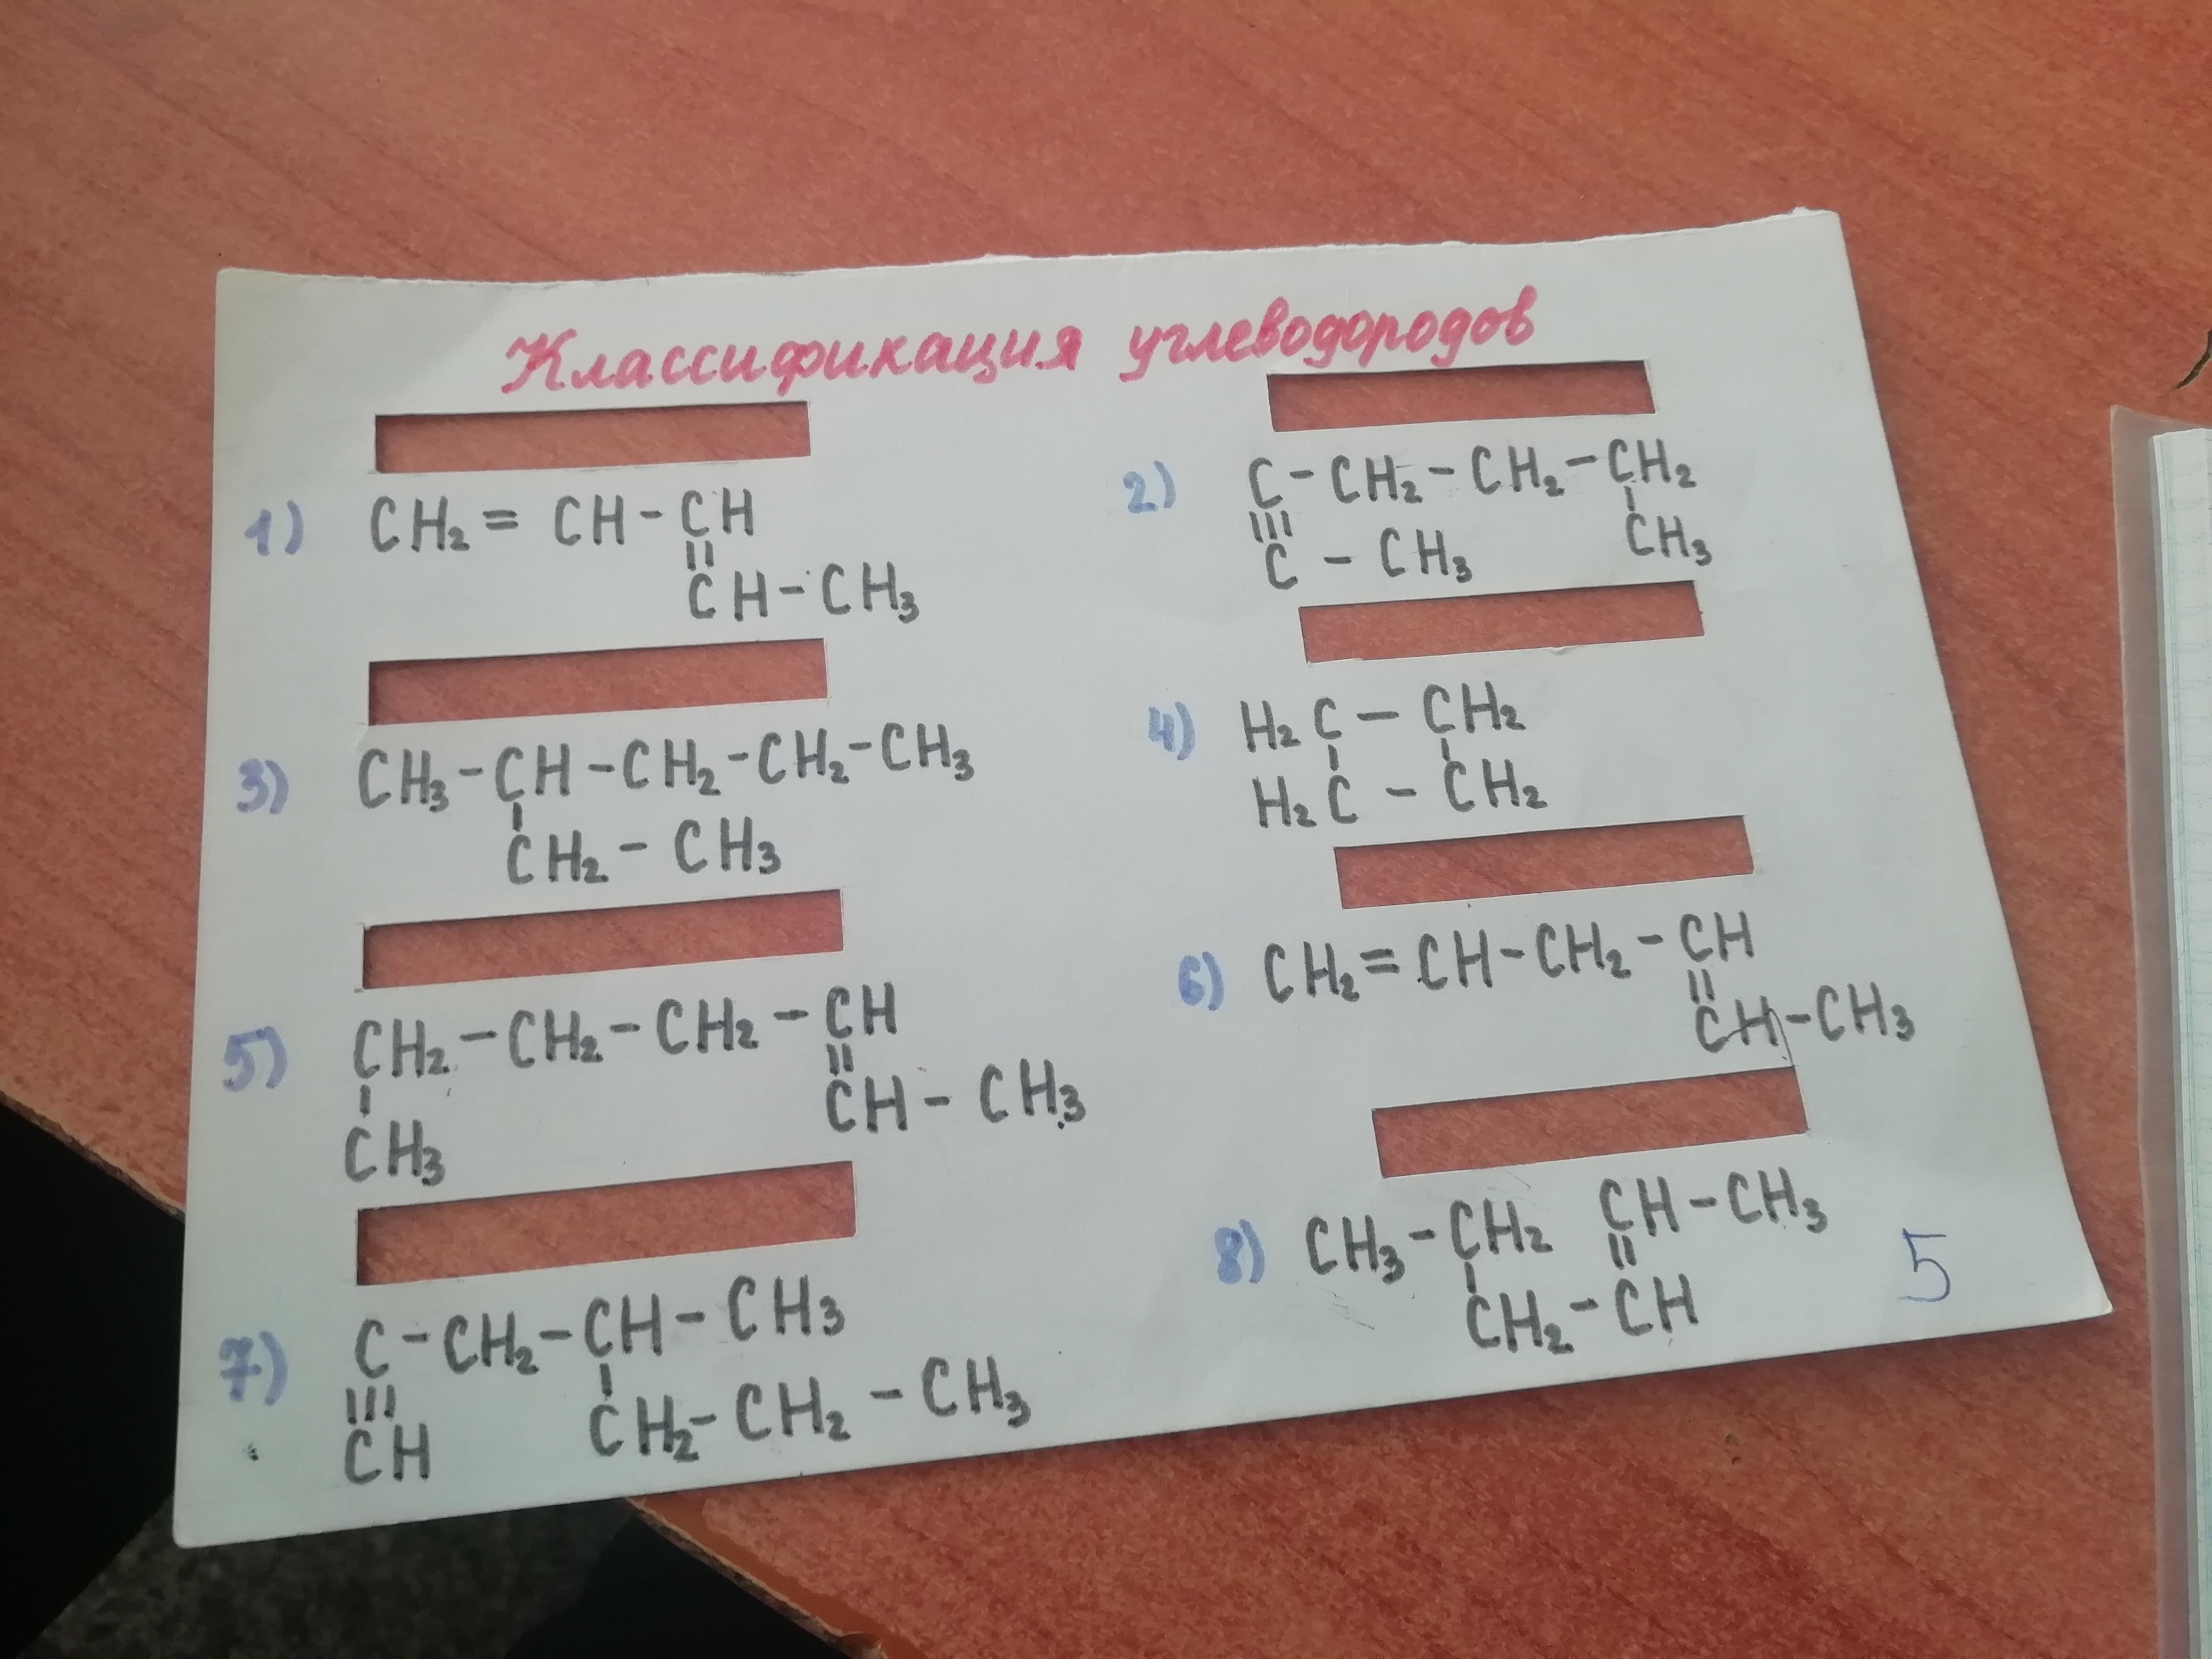 Классификация углеводородов
1) CH₂ = CH - CH
||
CH - CH₃
2) C - CH₂ - CH₂ - CH₂
||| |
C - CH₃ CH₃
3) CH₃ - CH - CH₂ - CH₂ - CH₃
|
CH₂ - CH₃
4) H₂C - CH₂
| |
H₂C - CH₂
5) CH₂ - CH₂ - CH₂ - CH
| ||
CH₃ CH - CH₃
6) CH₂ = CH - CH₂ - CH
||
CH - CH₃
7) C - CH₂ - CH - CH₃
||| |
CH CH₂ - CH₂ - CH₃
8) CH₃ - CH₂ CH - CH₃
| ||
CH₂ - CH
5